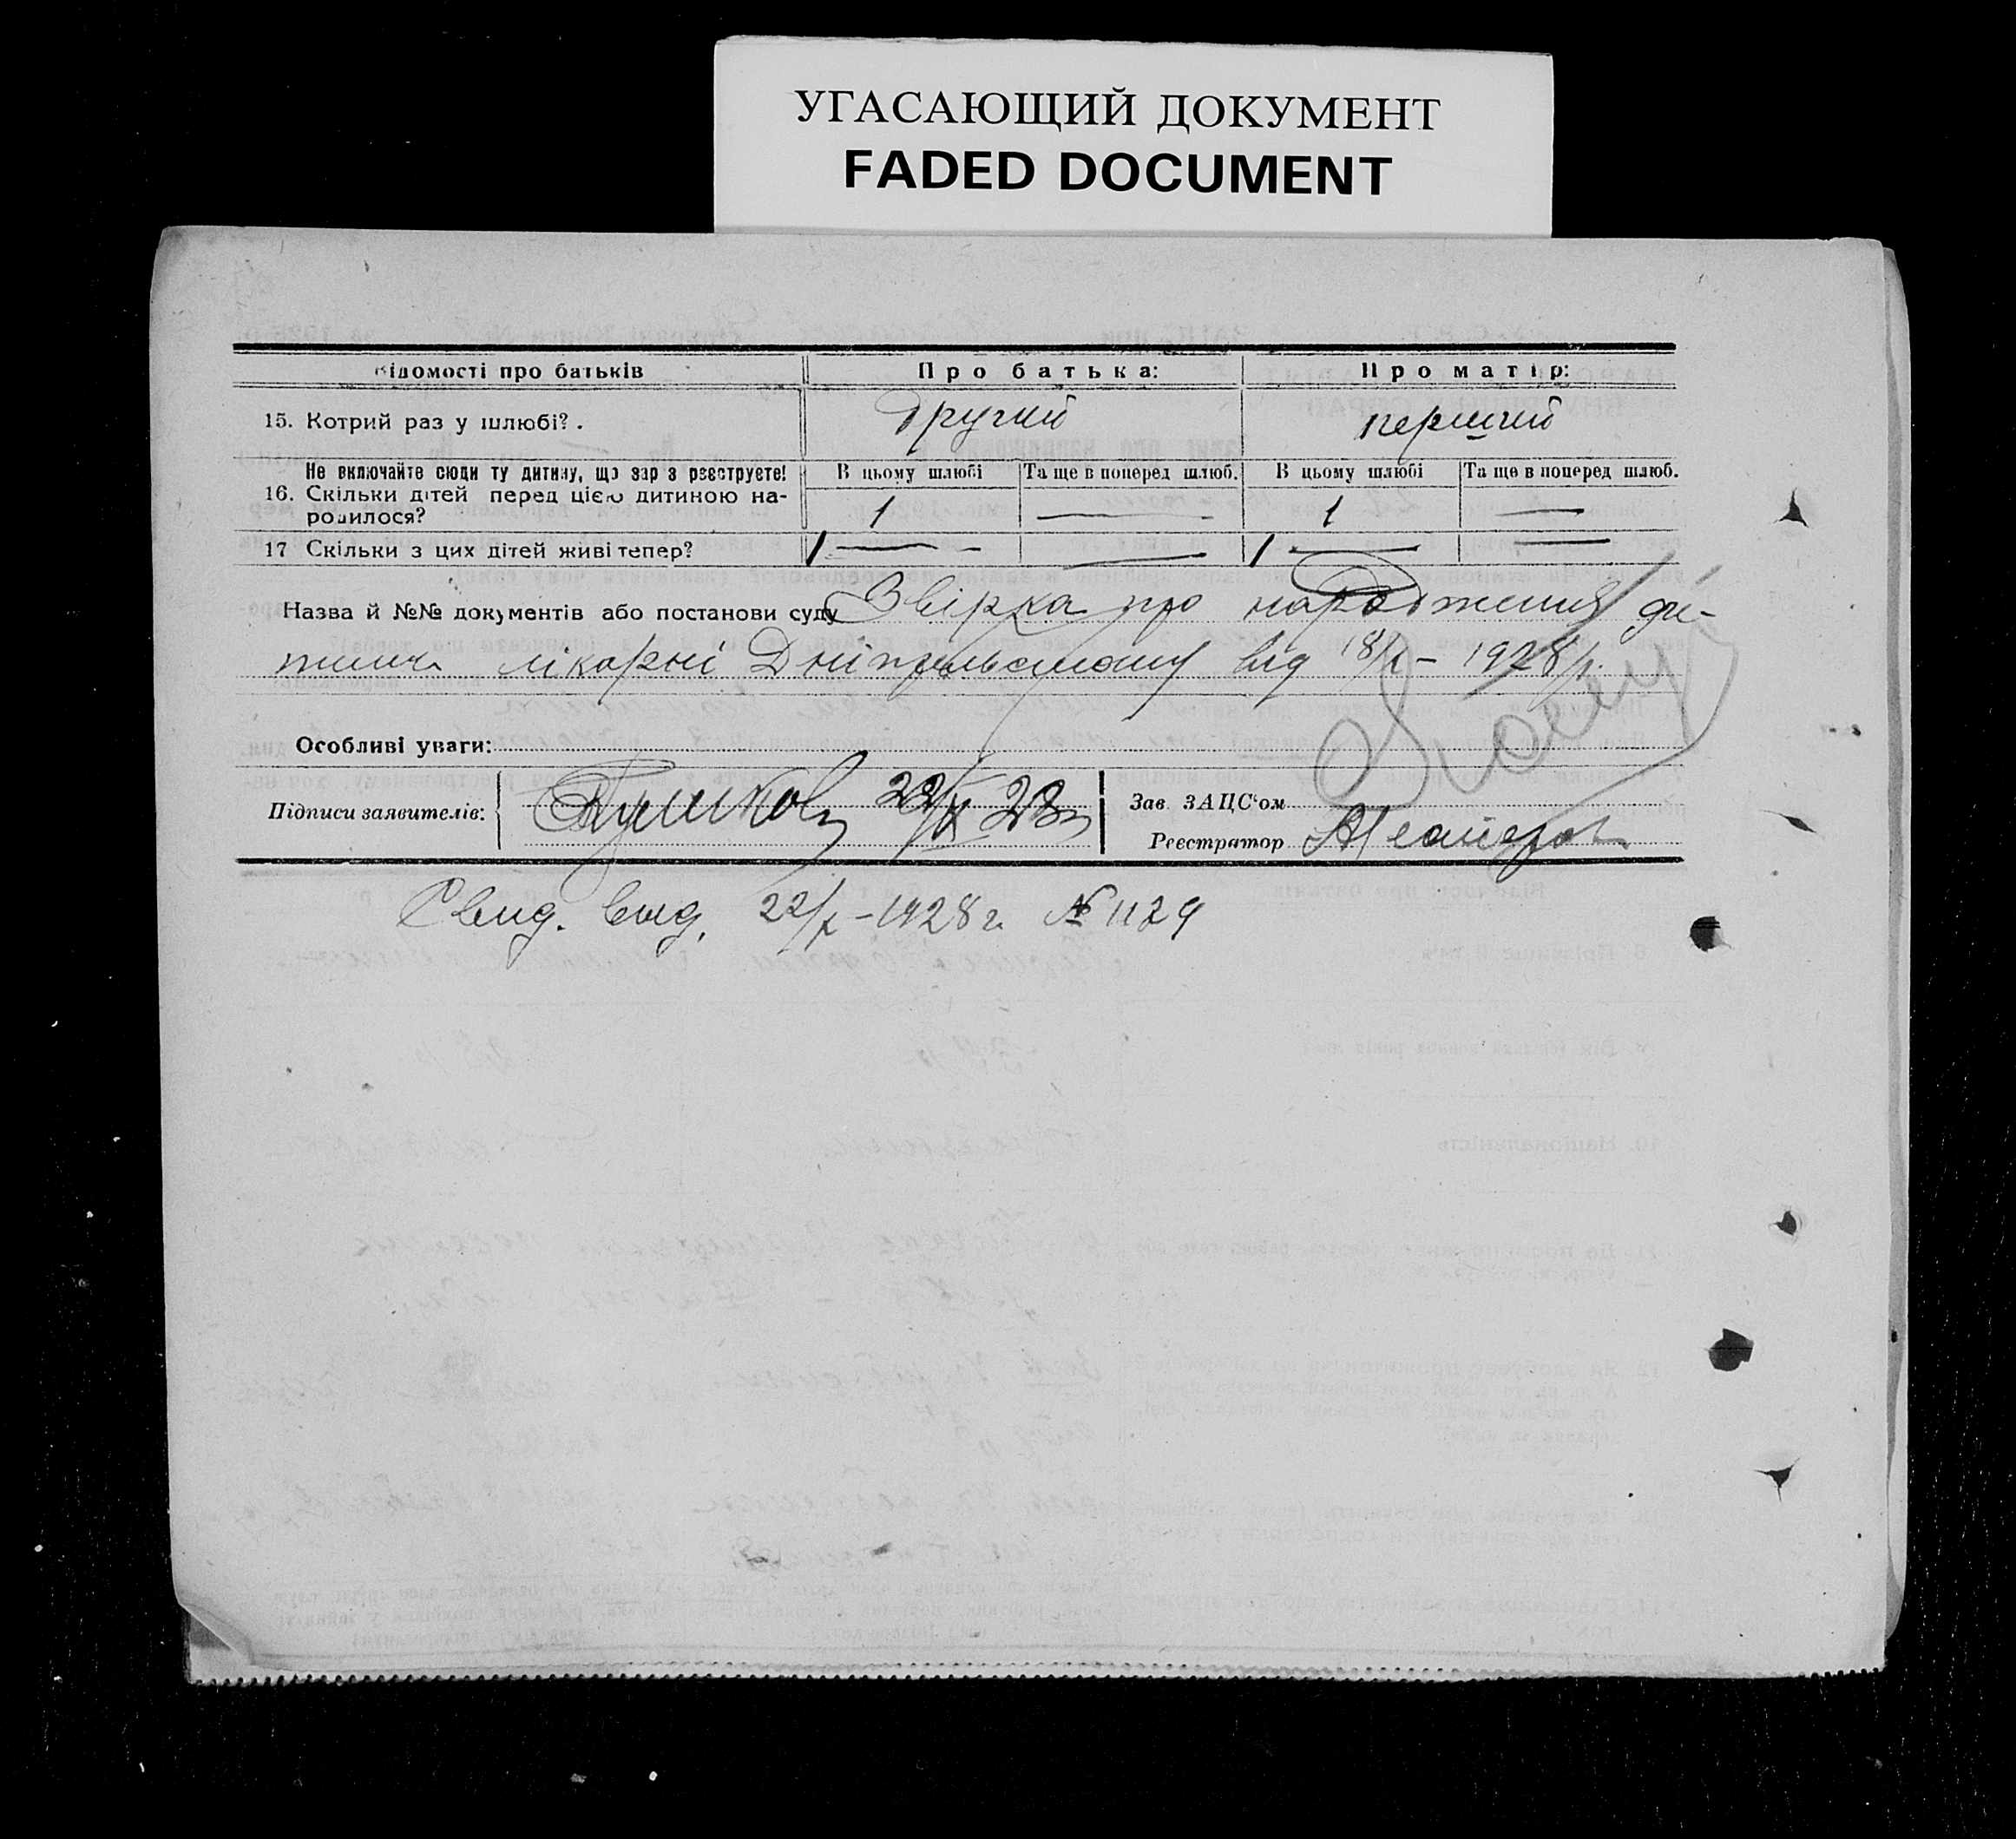 УГАСАЮЩИЙ ДОКУМЕНТ
FADED DOCUMENT
Відомості про батьків Про батька: Про матір:
15. Котрий раз у шлюбі?. другий перший
Не включайте сюди ту дитину, що зараз реєструєте! В цьому шлюбі Та ще в поперед шлюб. В цьому шлюбі Та ще в поперед шлюб.
16. Скільки дітей перед цією дитиною на- 1 — 1 —
родилося?
17 Скільки з цих дітей живі тепер? 1 — — 1 — —
Назва й №№ документів або постанови суду Звірка про народження ди-
тини лікарні від 18/X – 1928 р.
Особливі уваги:
Підписи заявителів: 22/X 28 Зав. ЗАЦС'ом
Реєстратор
Свид. выд. 22/X – 1928 г. № 1129